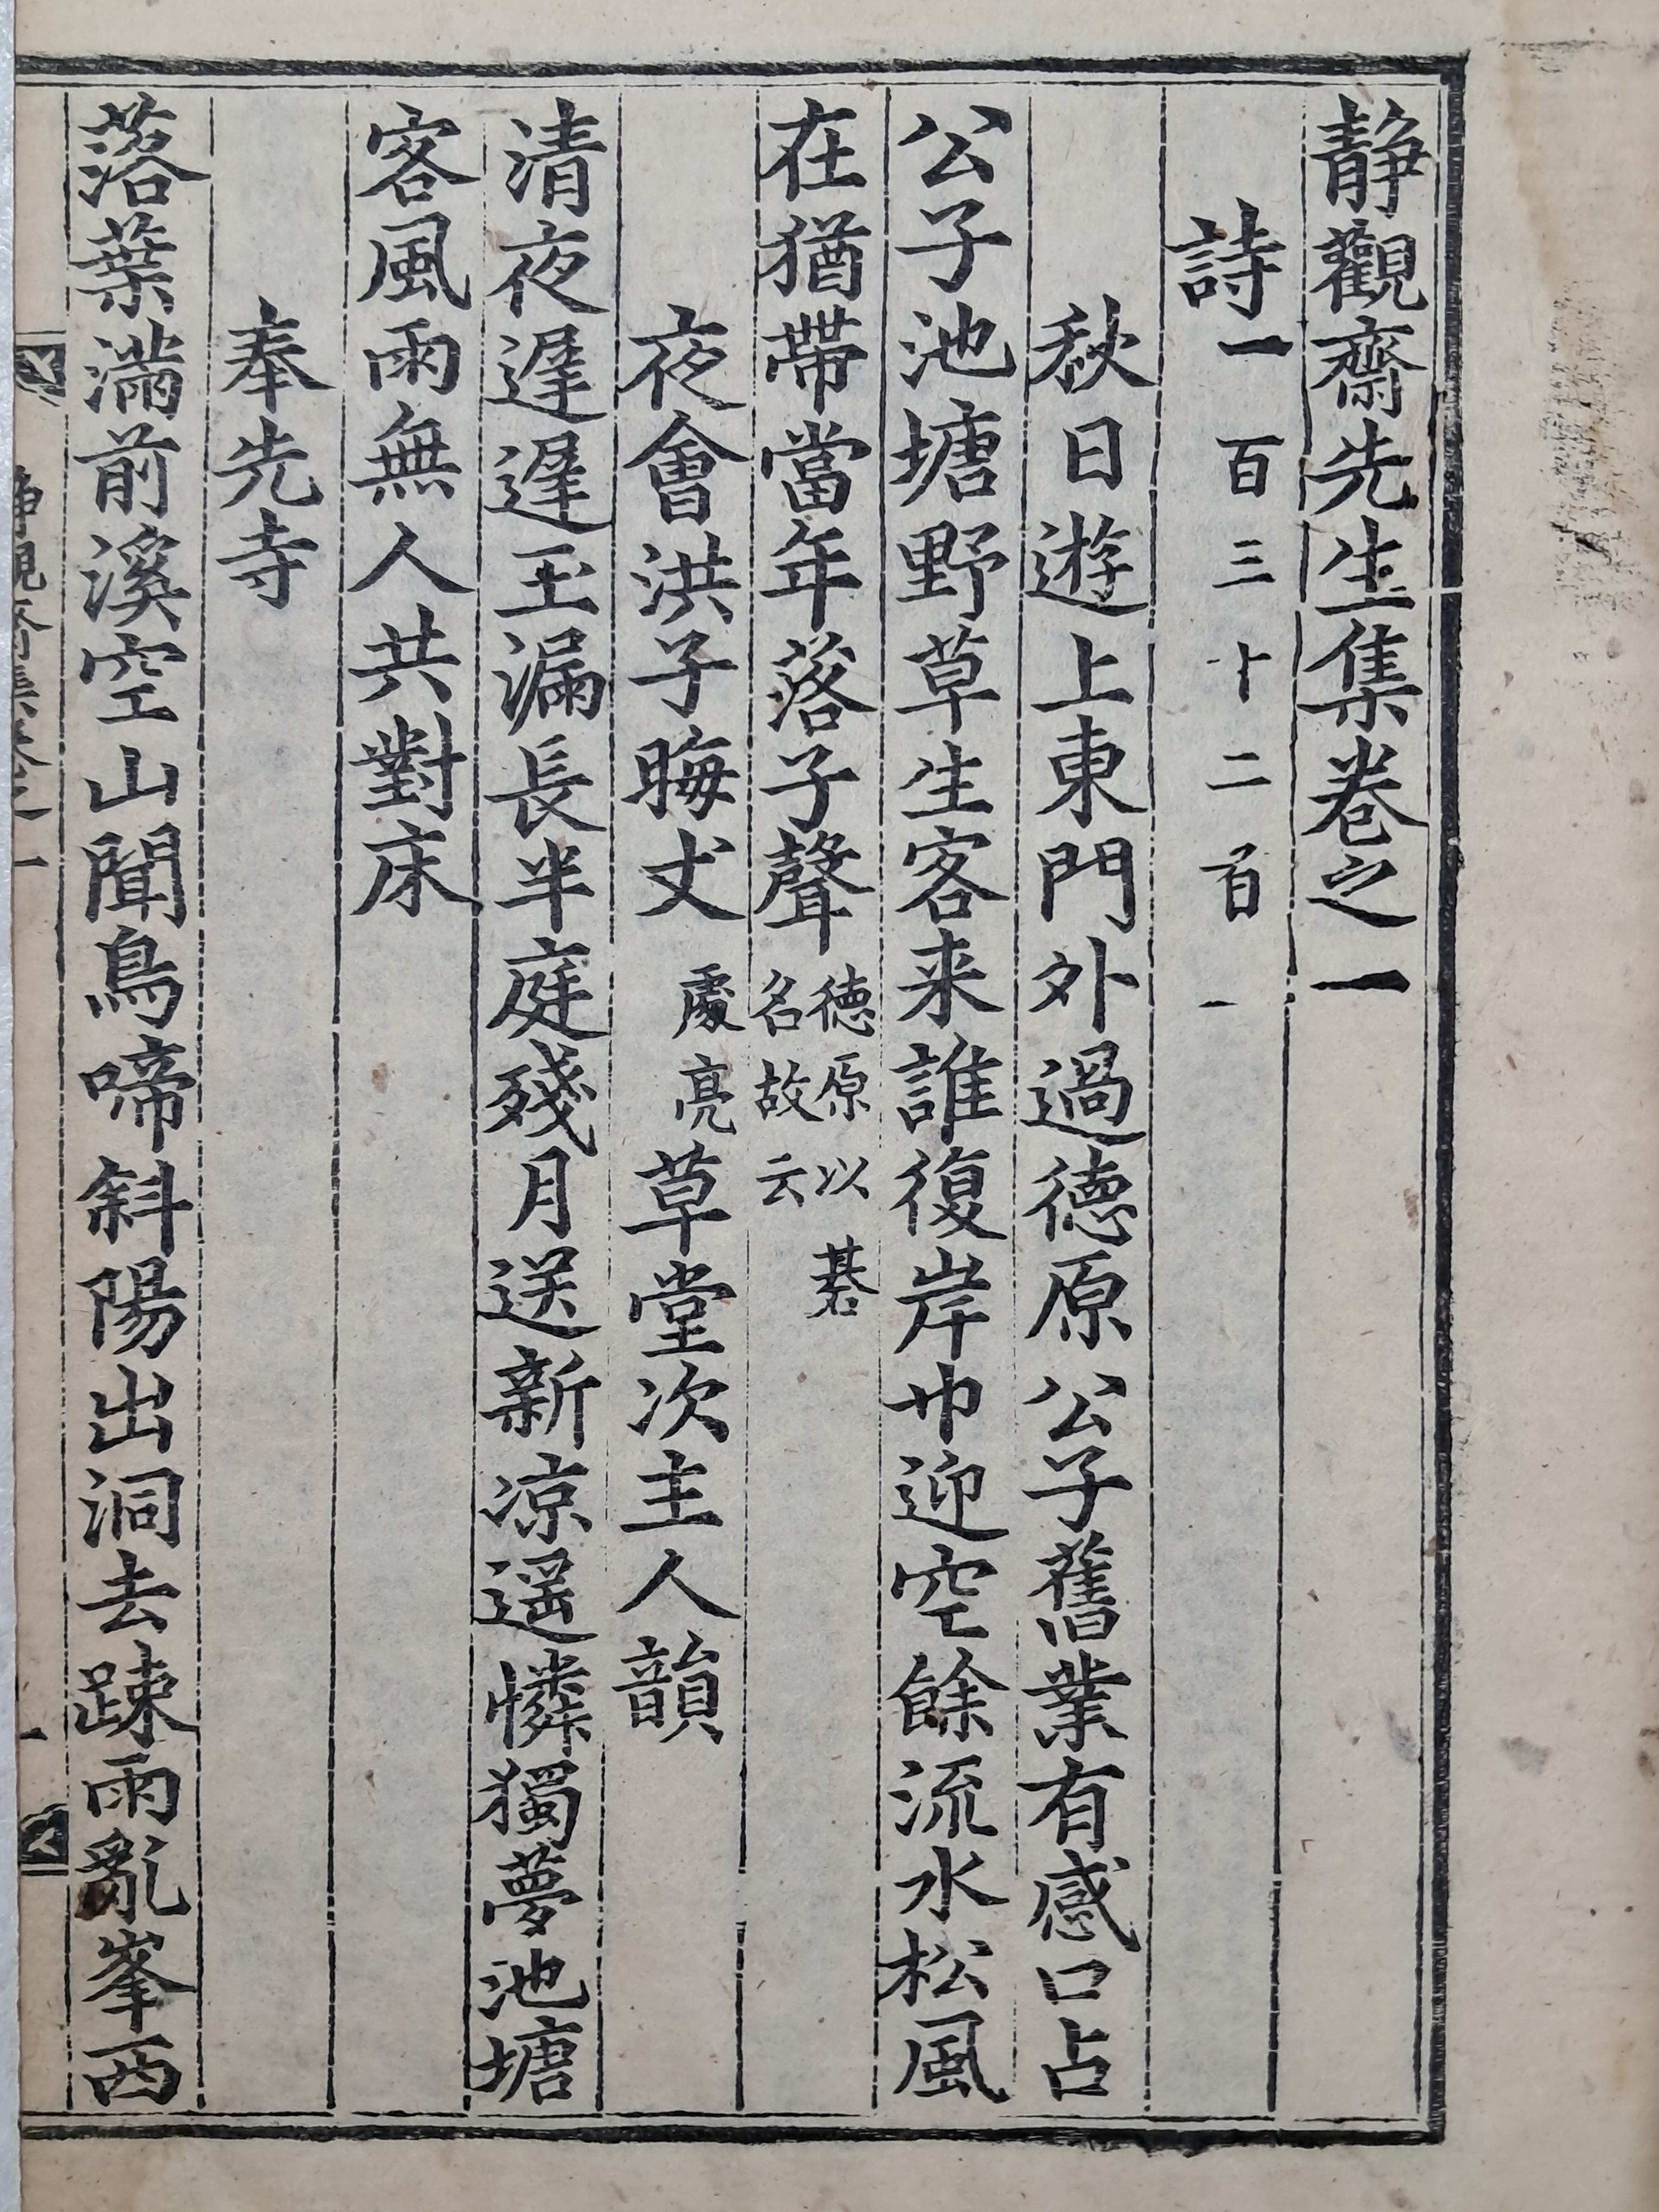 静觀齋先生集卷之一
詩一百三十二首一
秋日遊上東門外過德原公子舊業有感口占
公子池塘野草生客来誰復岸巾迎空餘流水松風
在猶帶當年落子聲
德原以碁
名故云
夜會洪子晦丈處亮草堂次主人韻
清夜遲遲玉漏長半庭殘月送新凉遥憐獨夢池塘
客風雨無人共對床
奉先寺
落葉滿前溪空山聞鳥啼斜陽出洞去踈雨亂峯西